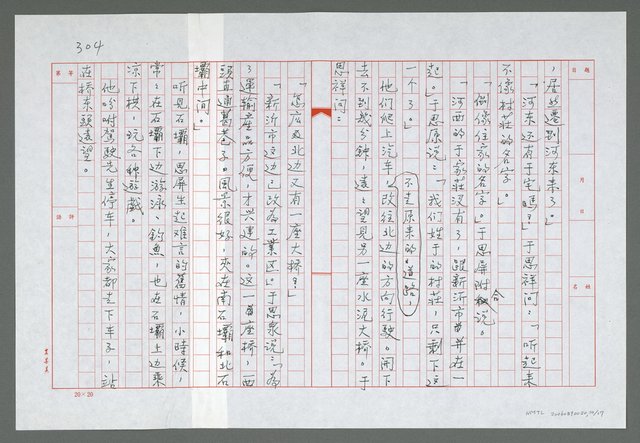 304
，居然遷到河東來了。」
「河東还有于宅嗎？」于思祥问：「听起来
不像村莊的名字。」
「倒像住家的名字。」于思屏附合说。
「河西的于家莊没有了，跟新沂市並在一
起。」于思原说：「我们姓于的村莊，只剩下这
一个了。」
他们爬上汽车，不走原来的道路，改往北边的方向行駛。開下
去不到幾分鐘，遠々望見另一座水泥大橋。于
思祥问：
「怎应北边又有一座大橋？」
「新沂市这边已改為工業区。」于思泉说：「為
了運輸產品方便，才兴建的。这一座橋，西
頭直通葛巷子。風景很好，夾在南石壩和北石
壩中间。」
听見石壩，思屏生起难言的舊情，小時候，
常々在石壩下边游泳、釣魚，也在石壩上边乘
凉下棋，玩各种遊戲。
他吩咐駕駛先生停車，大家都走下车子，站
在橋东頭遠望。
題目
月
日
姓名
等第
評語
20×20